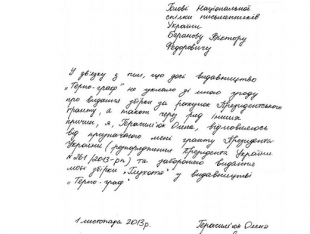 Голові Національної
спілки письменників
України
Баранову Віктору
Федоровичу
У зв'язку з тим, що досі видавництво
„Терно-граф" не уклало зі мною угоду
про видання збірки за рахунок Президентського
гранту, а також через ряд інших
причин, я, Герасим'юк Олена, відмовляюсь
від призначеного мені гранту Президента
України (розпорядження Президента України
/2013-рп) та забороняю видання
моєї збірки „Глухота" у видавництві
„Терно-граф".
1 листопада 2013р. Герасим'юк Олена